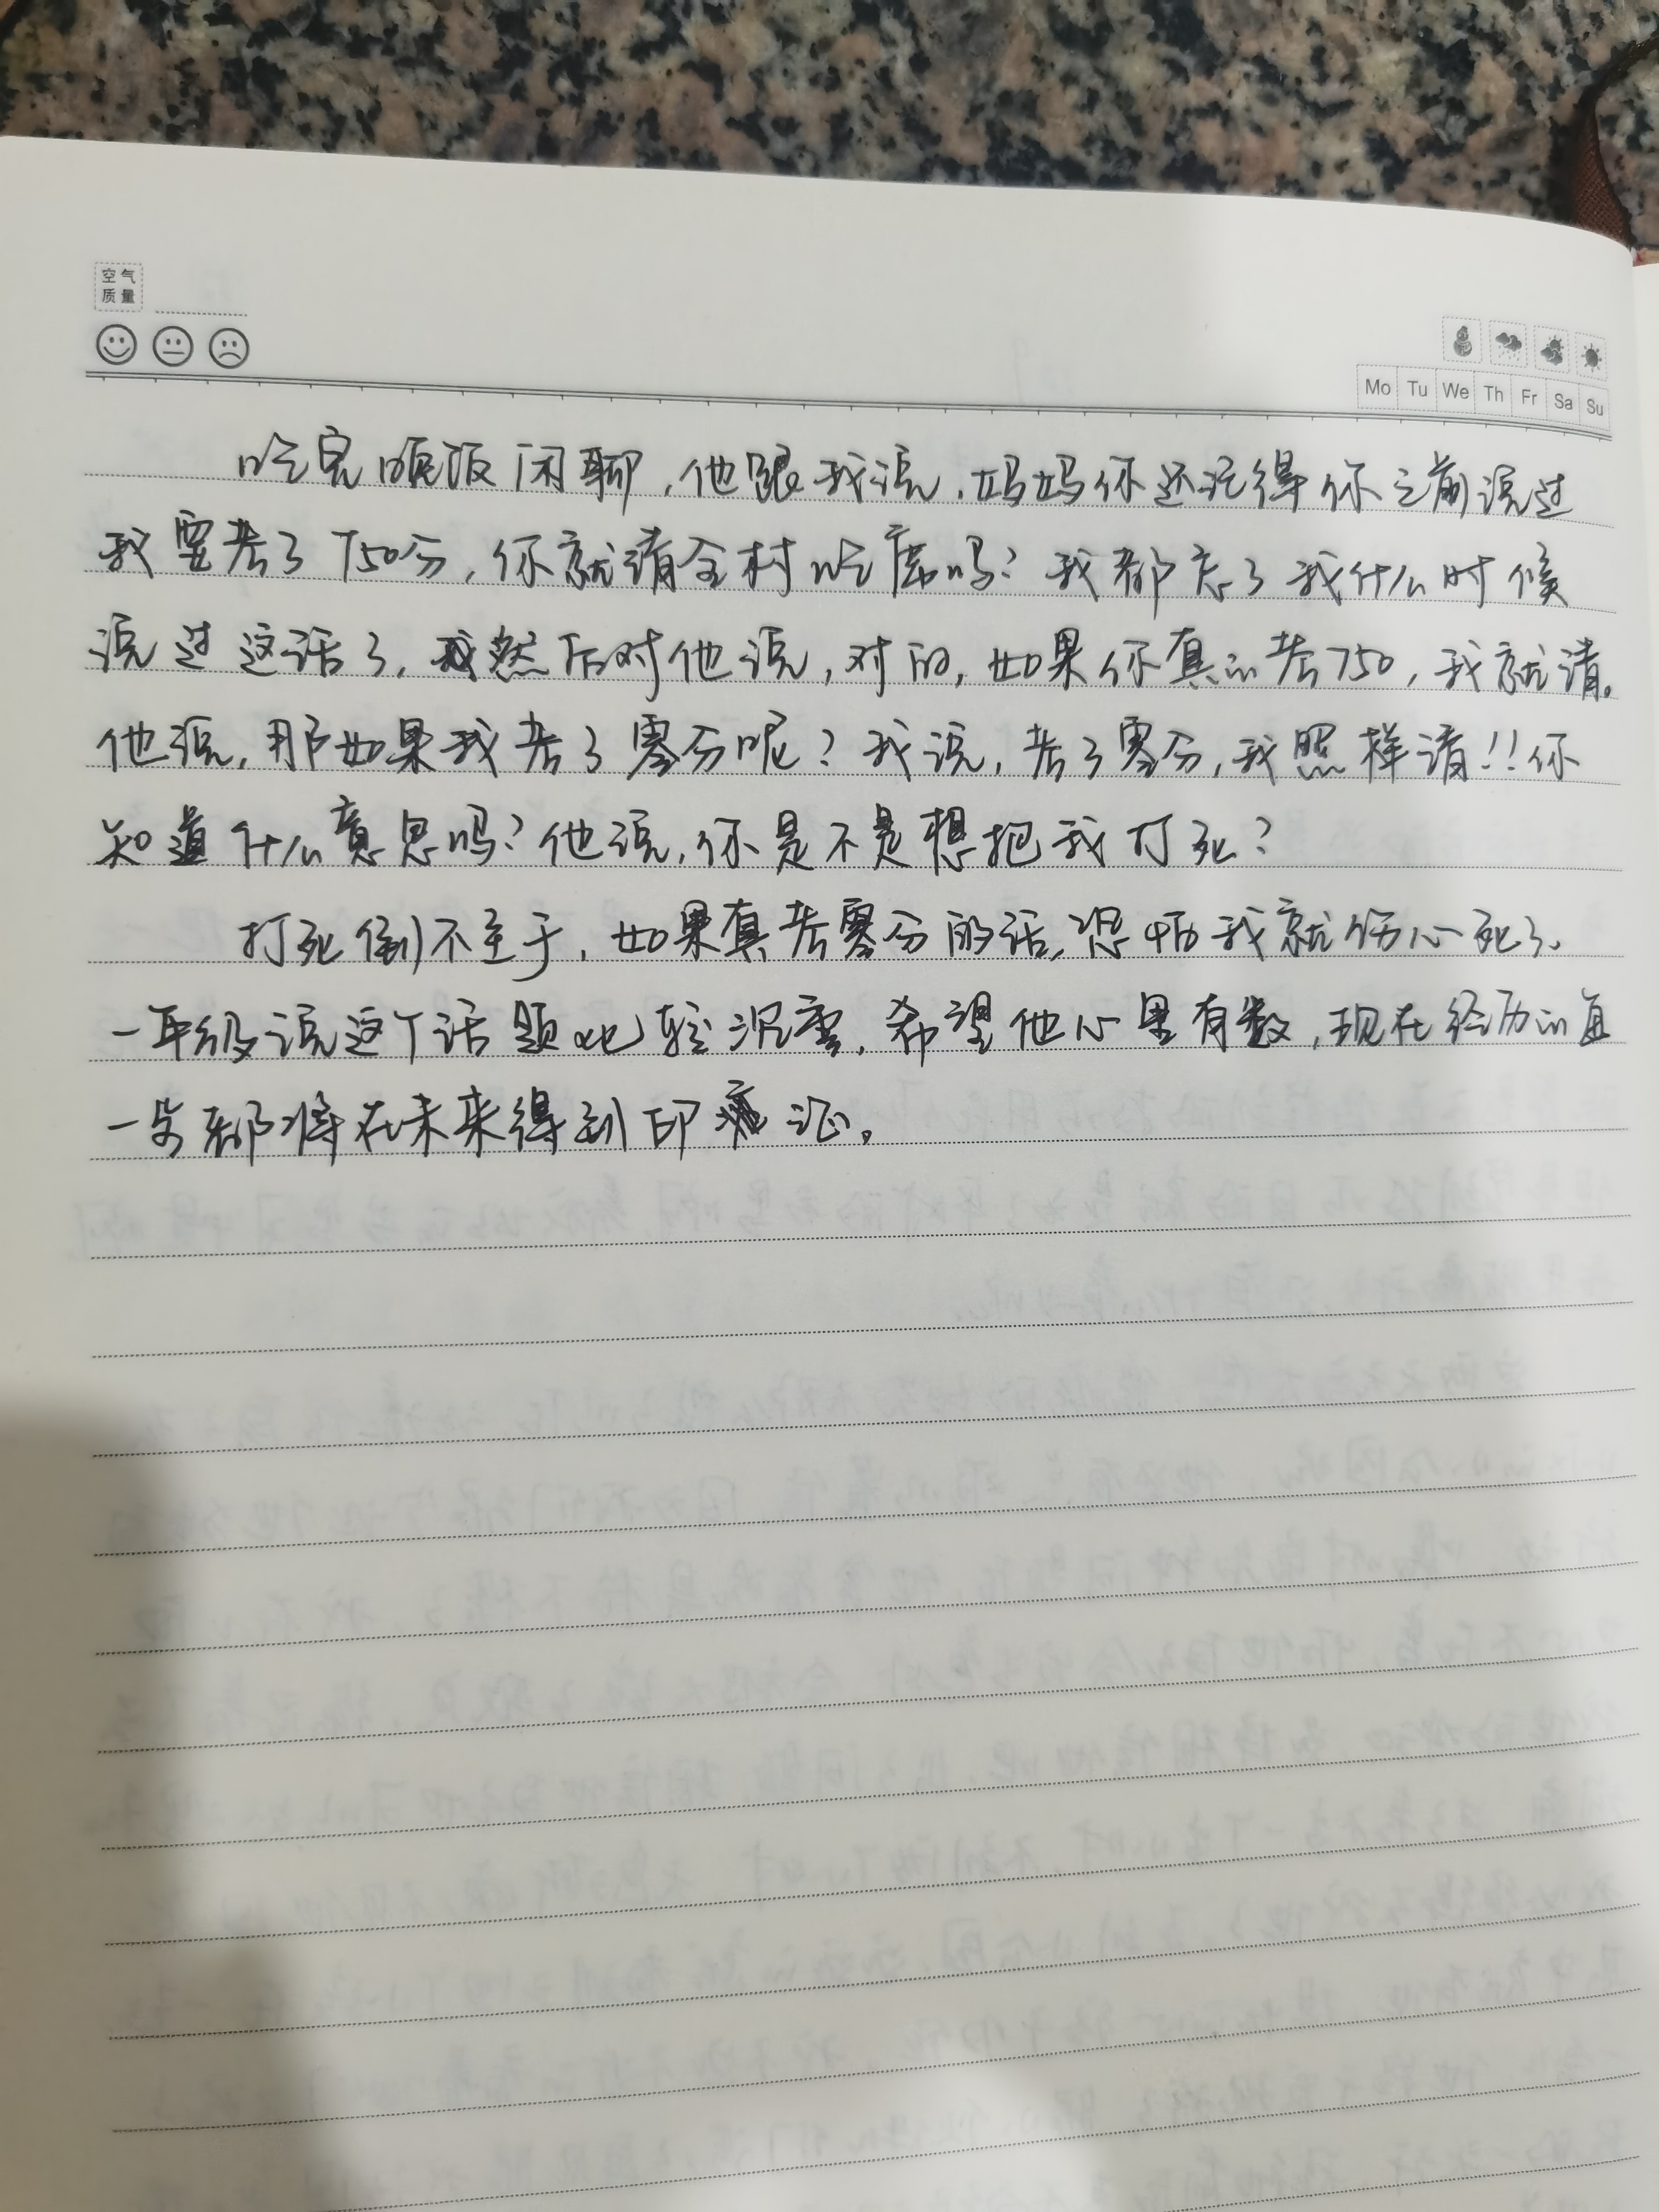 空气
质量
Mo Tu We Th Fr Sa Su
吃完晚饭闲聊，他跟我说，妈妈你还记得你之前说过
我要考了750分，你就请全村吃席吗？我都忘了我什么时候
说过这话了，我然后对他说，对的，如果你真的考750，我就请。
他说，那如果我考了零分呢？我说，考了零分，我照样请！！你
知道什么意思吗？他说，你是不是想把我打死？
打死倒不至于，如果真考零分的话，恐怕我就伤心死了、
一年级说这个话题也比较沉重，希望他心里有数，现在经历的每
一步都将在未来得到印证。